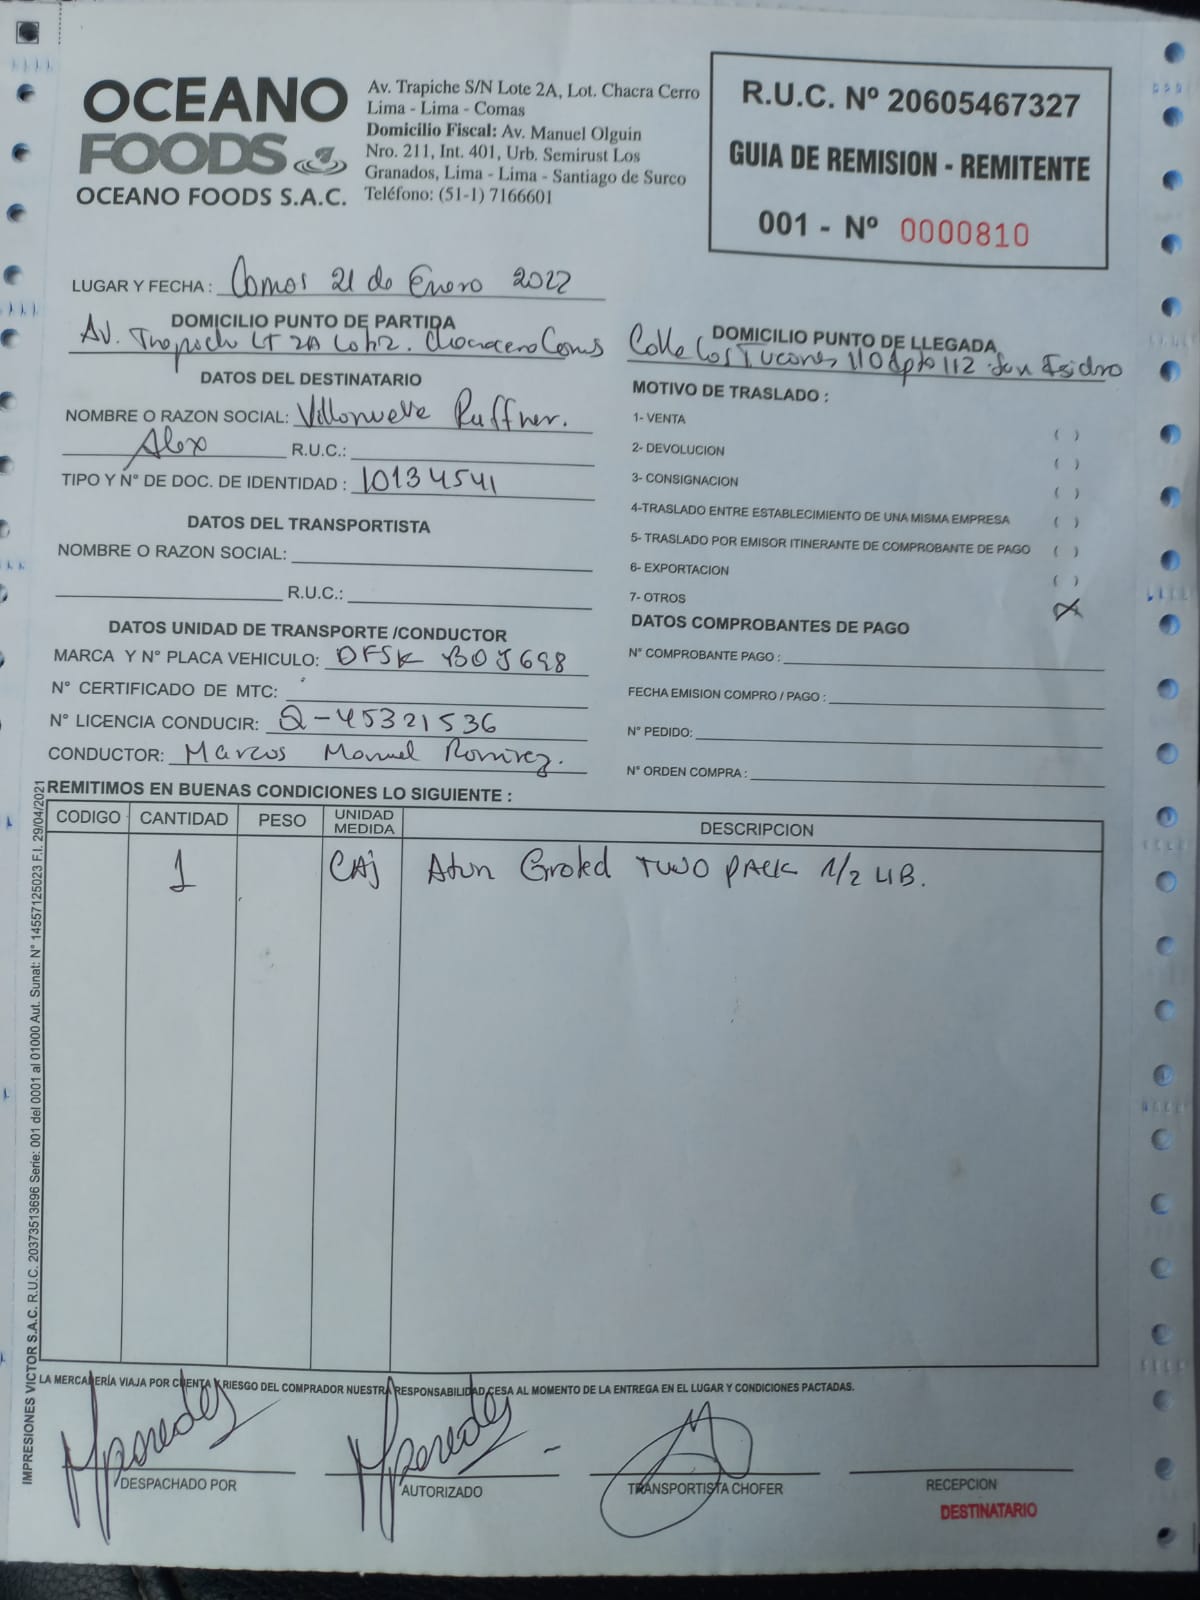 OCEANO
FOODS
OCEANO FOODS S.A.C.
Av. Trapiche S/N Lote 2A, Lot. Chacra Cerro
Lima - Lima - Comas
Domicilio Fiscal: Av. Manuel Olguin
Nro. 211, Int. 401, Urb. Semirust Los
Granados, Lima - Lima - Santiago de Surco
Teléfono: (51-1) 7166601
R.U.C. Nº 20605467327
GUIA DE REMISION - REMITENTE
001 - Nº 0000810
LUGAR Y FECHA : Comas 21 de Enero 2022
DOMICILIO PUNTO DE PARTIDA
Av. Trapiche LT 2A Lotiz. Chacracerro Comas
DOMICILIO PUNTO DE LLEGADA
Calle Los Tucanes 110 dpto 112 San Isidro
DATOS DEL DESTINATARIO
NOMBRE O RAZON SOCIAL: Villanueva Ruffner.
Alex R.U.C.:
TIPO Y N° DE DOC. DE IDENTIDAD : 10134541
DATOS DEL TRANSPORTISTA
NOMBRE O RAZON SOCIAL:
R.U.C.:
DATOS UNIDAD DE TRANSPORTE /CONDUCTOR
MARCA Y N° PLACA VEHICULO: DFSK BOJ698
N° CERTIFICADO DE MTC:
N° LICENCIA CONDUCIR: Q-45321536
CONDUCTOR: Marcos Manuel Ramirez.
MOTIVO DE TRASLADO :
1- VENTA ( )
2- DEVOLUCION ( )
3- CONSIGNACION ( )
4-TRASLADO ENTRE ESTABLECIMIENTO DE UNA MISMA EMPRESA ( )
5- TRASLADO POR EMISOR ITINERANTE DE COMPROBANTE DE PAGO ( )
6- EXPORTACION ( )
7- OTROS (X)
DATOS COMPROBANTES DE PAGO
N° COMPROBANTE PAGO :
FECHA EMISION COMPRO / PAGO :
N° PEDIDO:
N° ORDEN COMPRA :
REMITIMOS EN BUENAS CONDICIONES LO SIGUIENTE :
CODIGO CANTIDAD PESO UNIDAD MEDIDA DESCRIPCION
1 CAj Atun Grated TWO PACK 1/2 LIB.
IMPRESIONES VICTOR S.A.C. R.U.C. 20373513696 Serie: 001 del 0001 al 01000 Aut. Sunat: N° 14557125023 F.I. 29/04/2021
LA MERCADERÍA VIAJA POR CUENTA Y RIESGO DEL COMPRADOR NUESTRA RESPONSABILIDAD CESA AL MOMENTO DE LA ENTREGA EN EL LUGAR Y CONDICIONES PACTADAS.
DESPACHADO POR
AUTORIZADO
TRANSPORTISTA CHOFER
RECEPCION
DESTINATARIO